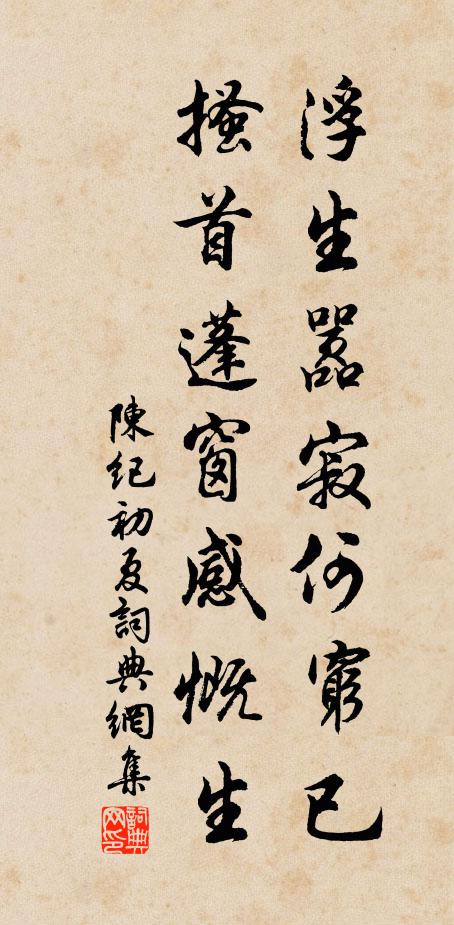 浮生嚣寂何窮已
搔首蓬窗感慨生
陳紀初夏詞典網集
詞典网印